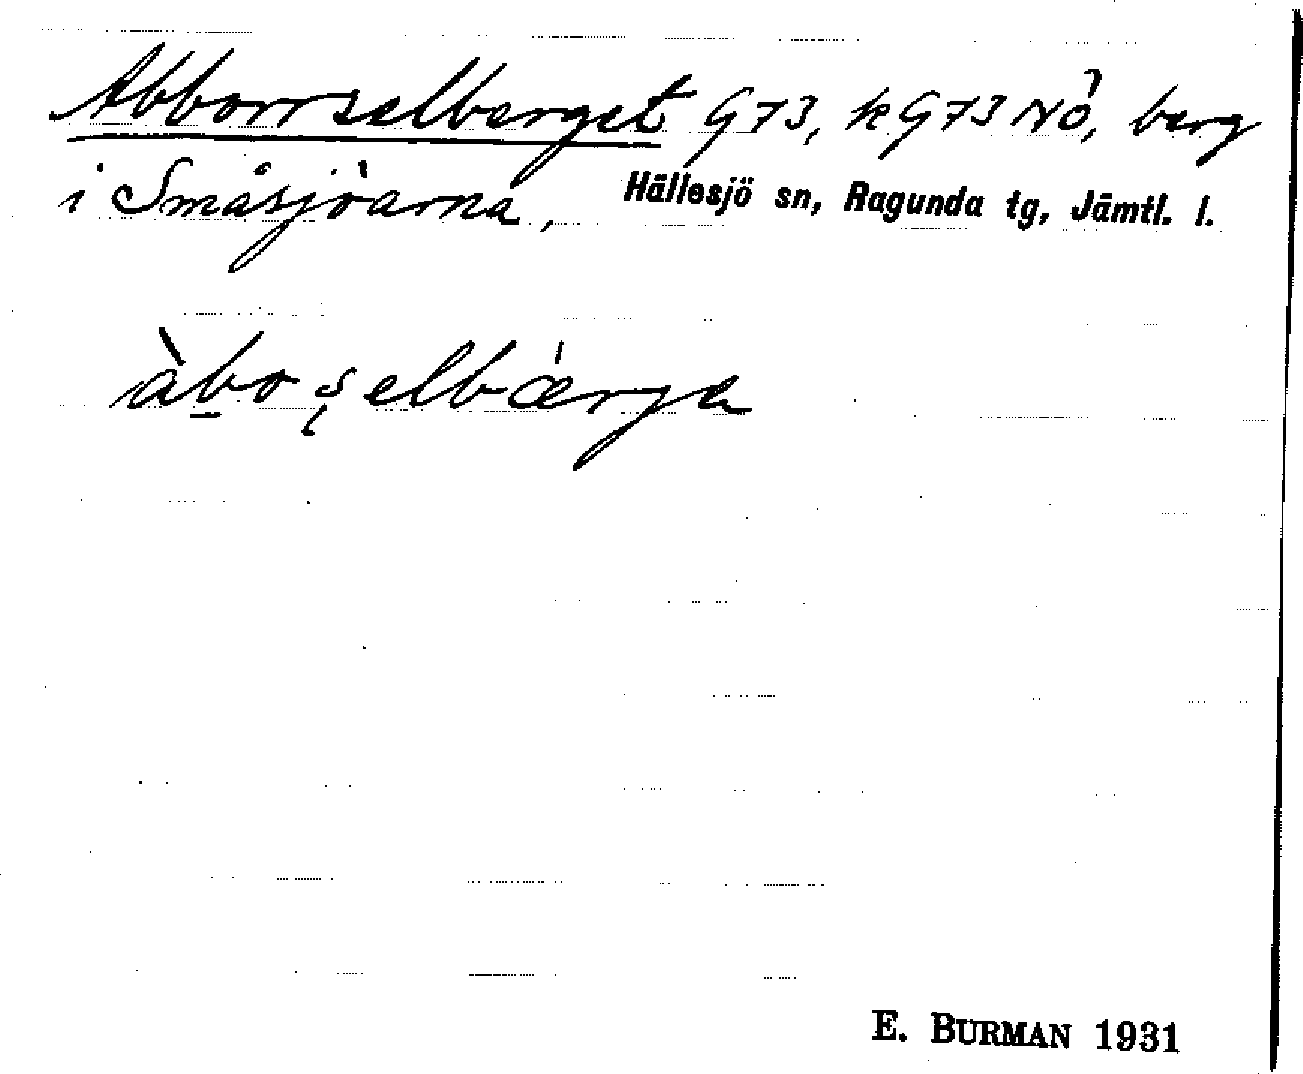 Abborrselberget G73, kG73 NÖ, berg
i Småsjöarna, Hällesjö sn, Ragunda tg, Jämtl. l.
àboşelbærga
E. BURMAN 1931